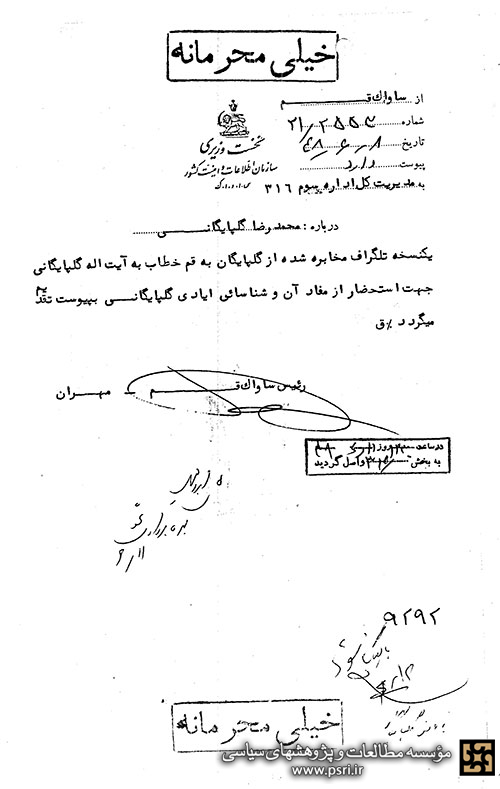 خیلی محرمانه
از ساواک قم
شماره ۲۱/۲۵۵۳
تاریخ ۴۸/۶/۸
پیوست دارد
به مدیریت کل اداره سوم ۳۱۶
نخست وزیری
سازمان اطلاعات و امنیت کشور
س.ا.و.ا.ک
درباره : محمدرضا گلپایگانی
یکنسخه تلگراف مخابره شده از گلپایگان به قم خطاب به آیت اله گلپایگانی
جهت استحضار از مفاد آن و شناسائی ایادی گلپایگانی بپیوست تقدیم
میگردد
رئیس ساواک قم – مهران
در ساعت روز
به بخش ۳۱۶ واصل گردید
بهره برداری
۶/۱۱
۹۲۹۲
بایگانی شود
۶/۱۲
خیلی محرمانه
مؤسسه مطالعات و پژوهشهای سیاسی
www.psri.ir